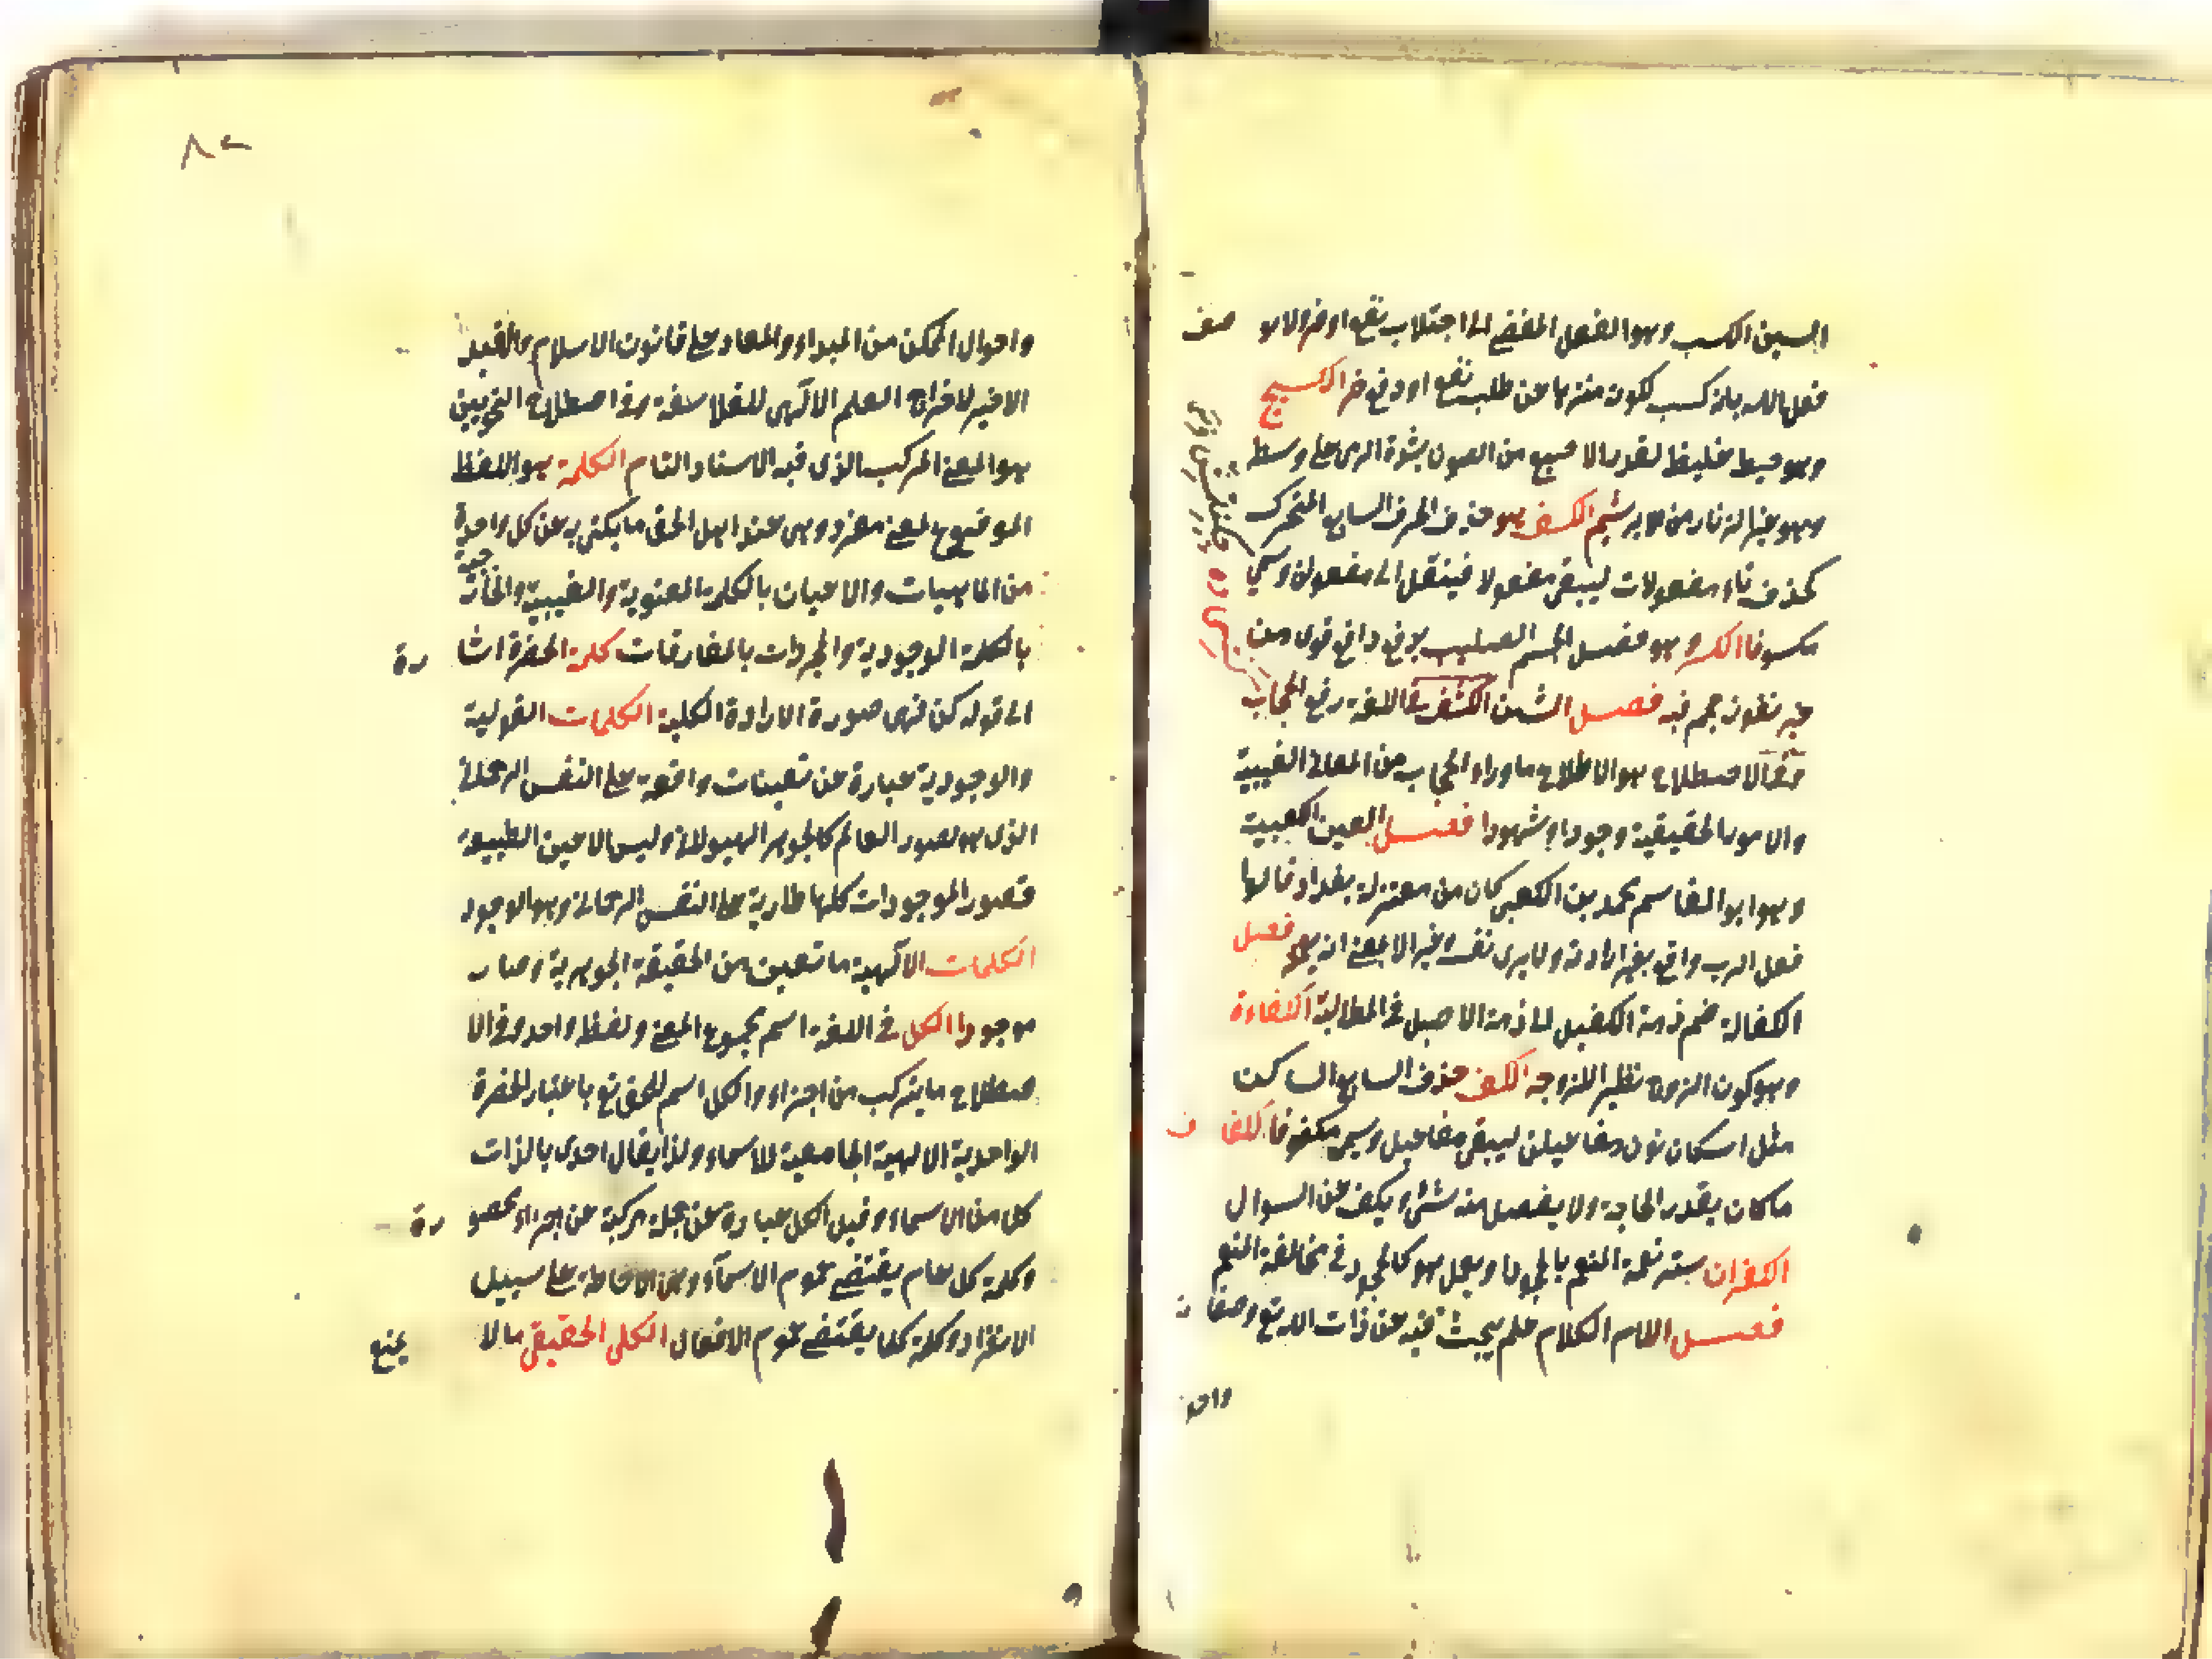 السين الكسب وهو الفعل المفضي الى اجتلاب نفع او دفع ولا يوصف
فعل الله بانه كسب لكونه منزها عن طلب نفع او دفع ضر الكستيج
وهو خيط غليظ بقدر الاصبع من الصوف يشده الذمي على وسطه
وهو غير الزنار من الابريشم الكسف هو حذف الحرف السابع المتحرك
كحذف تاء مفعولات ليبقى مفعولا فينقل الى مفعولن ويسمى
مكسوفا الكسر وهو فصل الجسم الصلب بدفع دافع قوى من
غير نفوذ جم فيه فصل الشين الكشف في اللغة رفع الحجاب
وفي الاصطلاح هو الاطلاع ما وراء الحجاب من المعاني الغيبية
والامور الحقيقية وجودا وشهودا فصل العين الكعبية
وهو ابو القاسم محمد بن الكعبي كان من معتزلة بغداد قالوا
فعل الرب واقع بغير ارادته ولا يرى نفسه وغيره الا بمعنى انه يعلمه فصل
الكفالة ضم ذمة الكفيل الى ذمة الاصيل في المطالبة الكفاءة
وهو كون الزوج نظيرا للزوجة الكف حذف السابع الساكن
مثل اسكان نون مفاعيلن ليبقى مفاعيل ويسمى مكفوفا الكفاف
ما كان بقدر الحاجة ولا يفضل منه شئ ويكف عن السوال
الكفران ستر نعمة المنعم بالجحود او بعمل هو كالجحود في مخالفة المنعم
فصل اللام الكلام علم يبحث فيه عن ذات الله تع وصفاته
واحو
٨٢
واحوال الممكن من المبداء والمعاد على قانون الاسلام والقيد
الاخير لاخراج العلم الالهى للفلاسفة وفي اصطلاح النحويين
هو المعنى المركب الذى فيه الاسناد التام الكلمة هو اللفظ
الموضوع لمعنى مفرد وهى عند اهل الحق ما يكنى به عن كل واحدة
من الماهيات والاعيان بالكلمة المعنوية والغيبية والخارجية
بالكلمة الوجودية والمجردات بالمفارقات كلمة الحضرة اشارة
الى قوله كن فهى صورة الارادة الكلية الكلمات القولية
والوجودية عبارة عن تعينات واقعة على النفس الرحمانى
الذى هو لصور العالم كالجوهر الهيولانى وليس الا عين الطبيعة
فصور الموجودات كلها طارية على النفس الرحمانى وهو الوجود
الكلمات الالهية ما تعين من الحقيقة الجوهرية وصار
موجودا الكل في اللغة اسم مجموع المعنى ولفظه واحد وفى الا
صطلاح ما يتركب من اجزاء والكل اسم للحق تع باعتبار الحضرة
الواحدية الالهية الجامعية للاسماء ولذا يقال احدى بالذات
كل من الاسماء وقيل الكل عبارة عن جملة مركبة عن اجزاء محصورة
وكلمة كل عام يقتضى عموم الاسماء وهى الاحاطة على سبيل
الانفراد وكلمة كلما يقتضى عموم الافعال الكلى الحقيقى ما لا يمنع